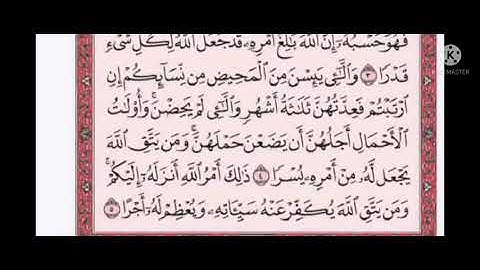 فَهُوَ حَسْبُهُۥٓ إِنَّ ٱللَّهَ بَٰلِغُ أَمْرِهِۦ قَدْ جَعَلَ ٱللَّهُ لِكُلِّ شَىْءٍ
قَدْرًا ٣ وَٱلَّٰٓـِٔى يَئِسْنَ مِنَ ٱلْمَحِيضِ مِن نِّسَآئِكُمْ إِنِ
ٱرْتَبْتُمْ فَعِدَّتُهُنَّ ثَلَٰثَةُ أَشْهُرٍ وَٱلَّٰٓـِٔى لَمْ يَحِضْنَ وَأُو۟لَٰتُ
ٱلْأَحْمَالِ أَجَلُهُنَّ أَن يَضَعْنَ حَمْلَهُنَّ وَمَن يَتَّقِ ٱللَّهَ
يَجْعَل لَّهُۥ مِنْ أَمْرِهِۦ يُسْرًا ٤ ذَٰلِكَ أَمْرُ ٱللَّهِ أَنزَلَهُۥٓ إِلَيْكُمْ
وَمَن يَتَّقِ ٱللَّهَ يُكَفِّرْ عَنْهُ سَيِّـَٔاتِهِۦ وَيُعْظِمْ لَهُۥٓ أَجْرًا ٥